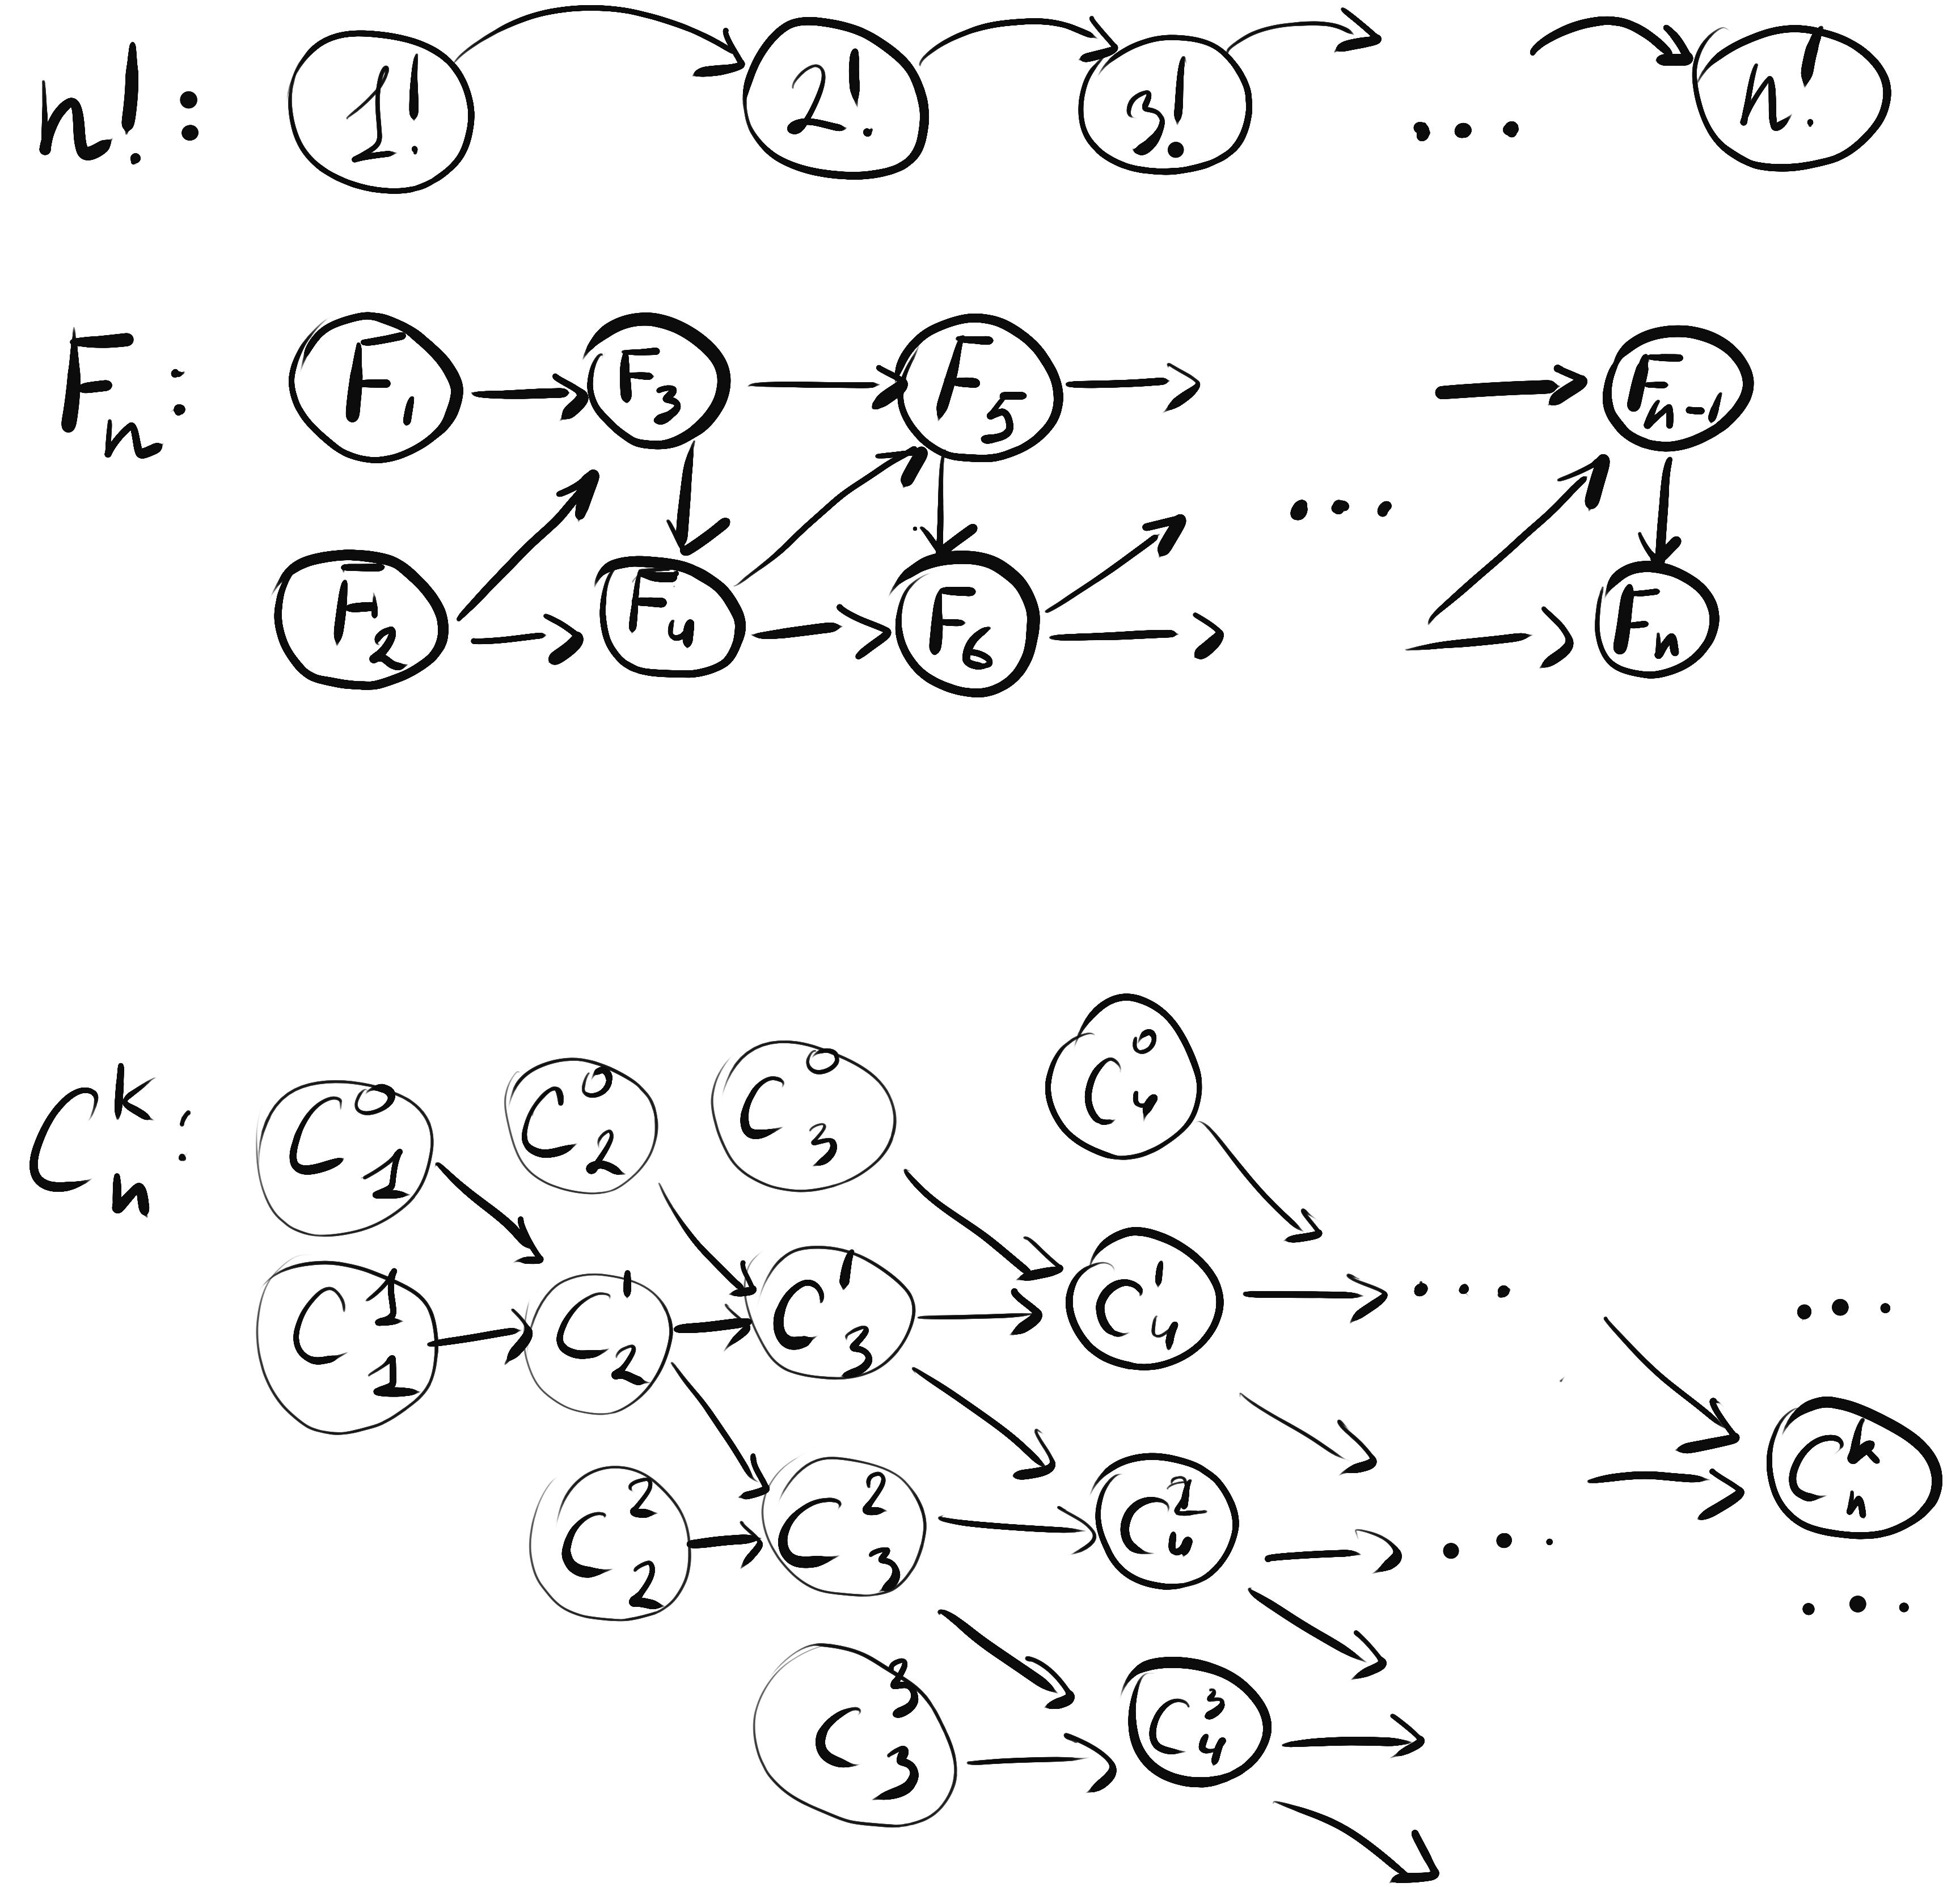 n!: 1! 2! 3! ... n!
F_n: F_1 F_3 F_5 F_{n-1}
...
F_2 F_4 F_6 F_n
C_n^k: C_1^0 C_2^0 C_3^0 C_4^0
C_1^1 C_2^1 C_3^1 C_4^1 ... ...
C_2^2 C_3^2 C_4^2 ... C_n^k
...
C_3^3 C_4^3